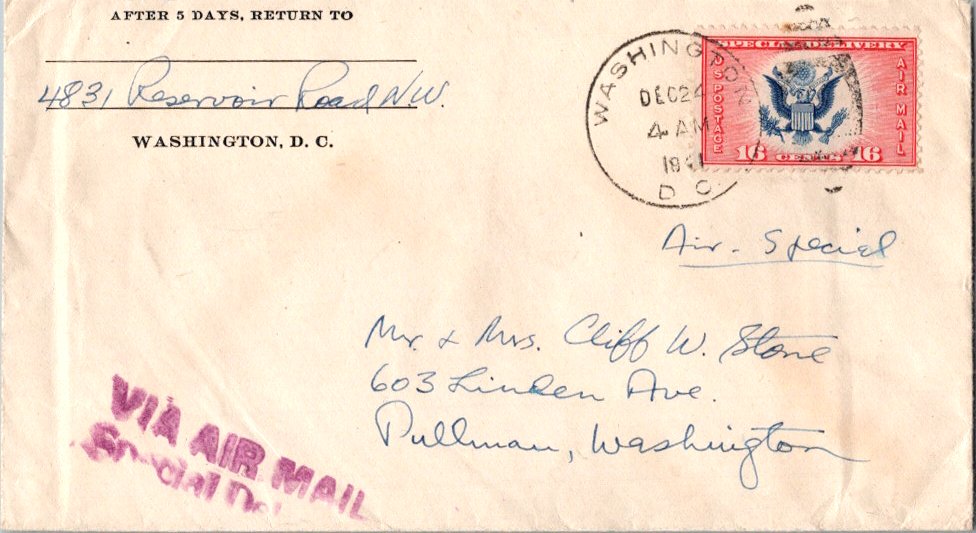 AFTER 5 DAYS, RETURN TO
4831 Reservoir Road NW.
WASHINGTON, D. C.
WASHINGTON
DEC 24
4 AM
D C
SPECIAL DELIVERY
U S POSTAGE
AIR MAIL
16 CENTS 16
Air - Special
Mr. & Mrs. Cliff W. Stone
603 Linden Ave.
Pullman, Washington
VIA AIR MAIL
Special Del